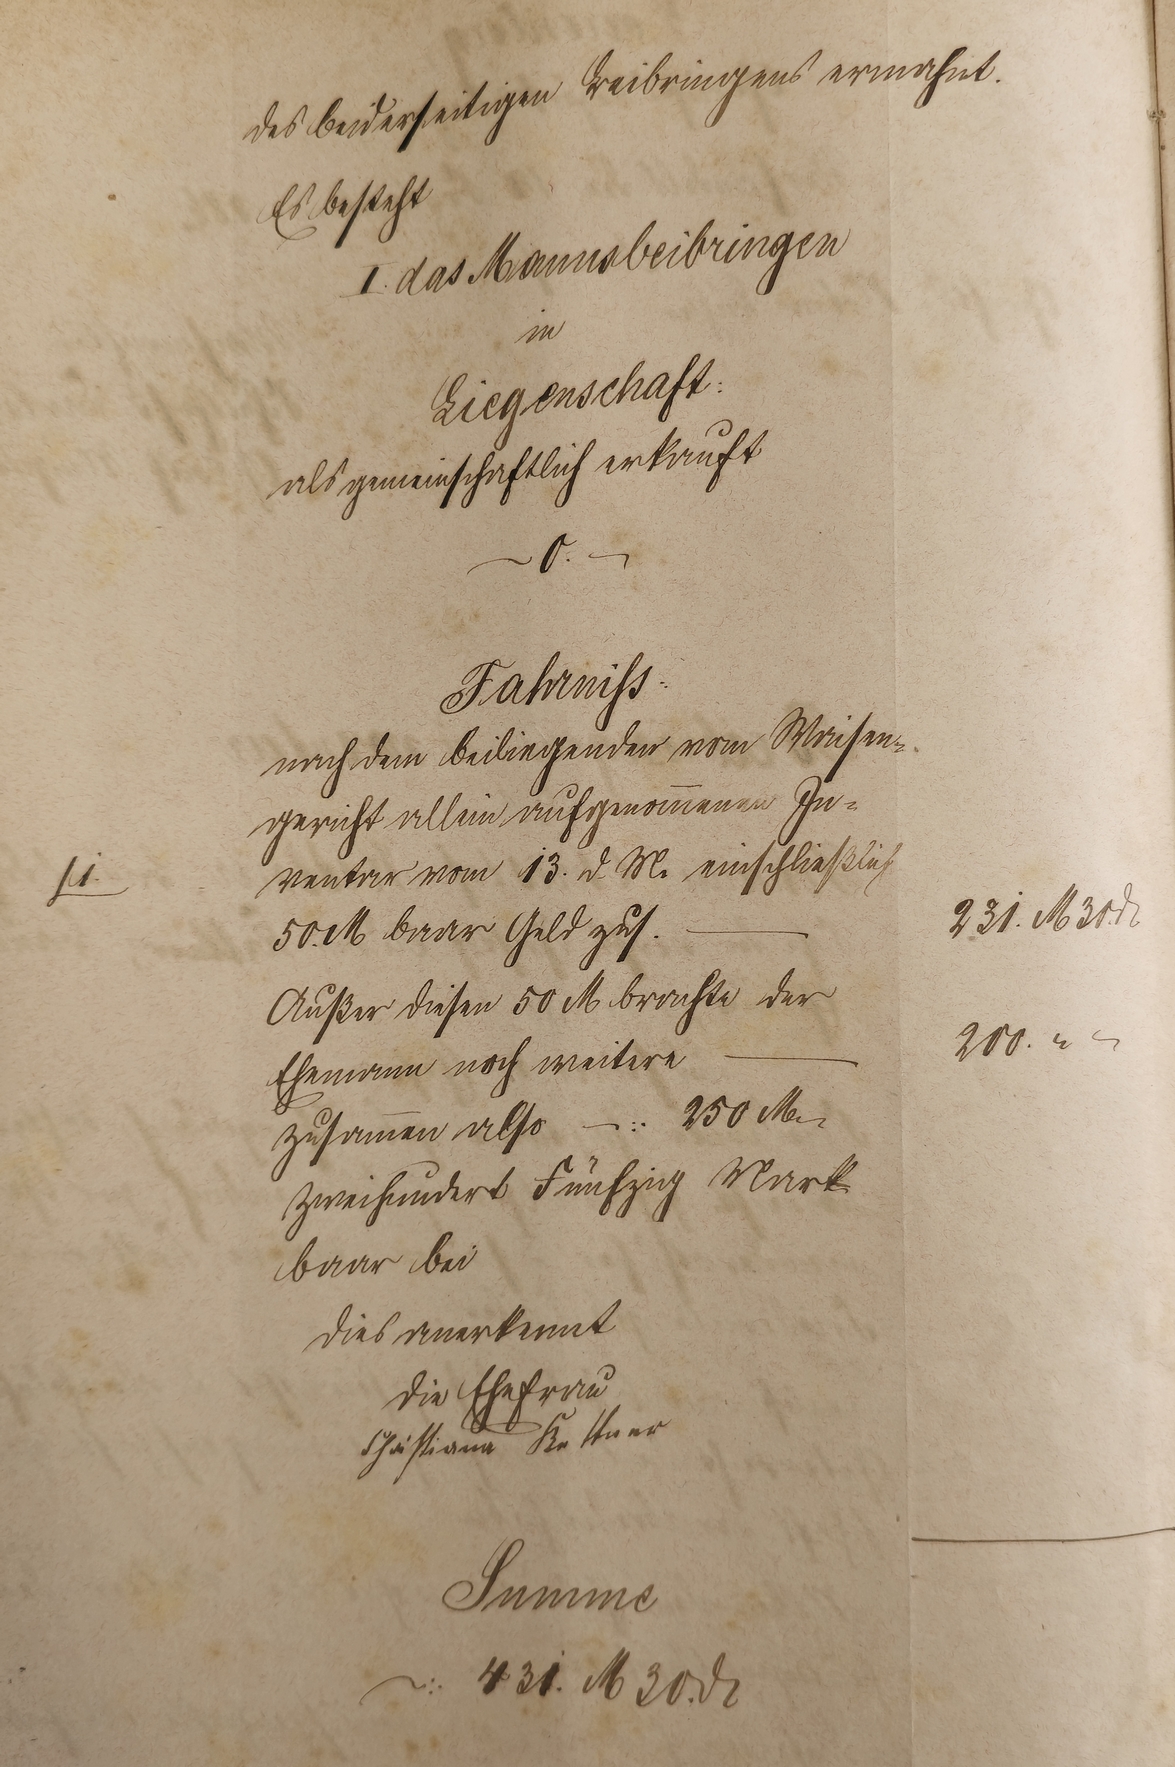 des beiderseitigen Beibringens ermahnt.
Es besteht
I. das Mannsbeibringen
in
Liegenschaft:
als gemeinschaftlich erkauft
— 0. —
Fahrniß:
nach dem beiliegenden vom Waisen=
gericht allein aufgenom̅enen In=
ventar vom 13. d. M. einschließlich
50. M baar Geld zus. —
231. M 30. ₰
Außer diesen 50 M brachte der
Ehemann noch weitere —
200. " "
zusam̅en also —:: 250 M
zweihundert Fünfzig Mark
baar bei
dies anerkennt
die Ehefrau
Christiana Kettner
Summe
—:: 431. M 30. ₰